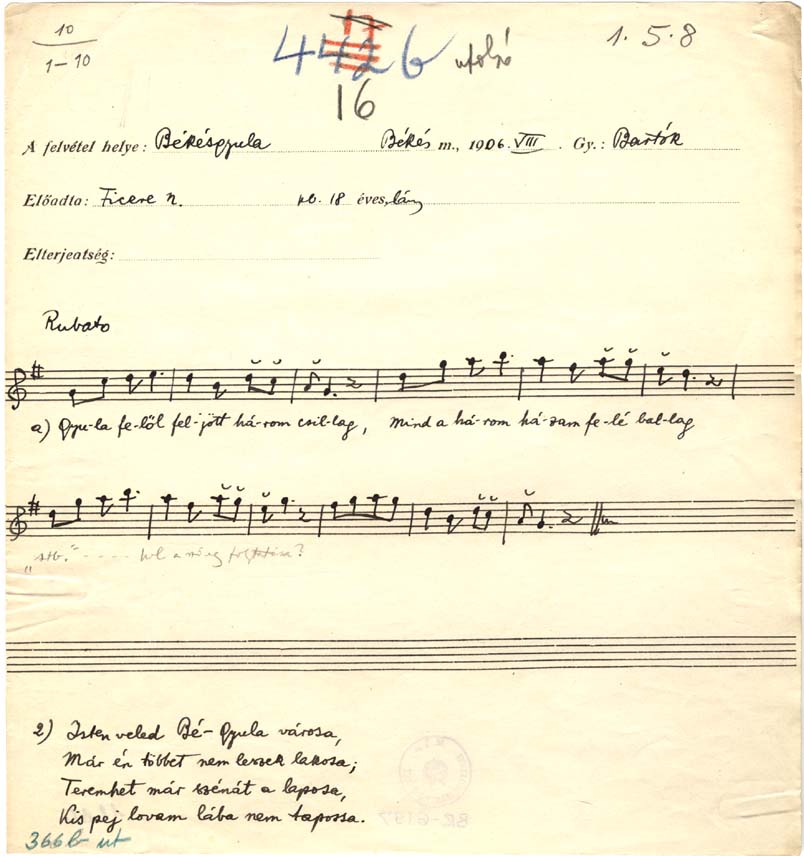 10
1–10
442 b utolsó
1. 5. 8
16
A felvétel helye: Békésgyula Békés m., 1906. VIII. Gy.: Bartók
Előadta: Ficere n. kb. 18 éves, lány
Elterjedtség:
Rubato
a) Gyu-la fe-lől fel-jött há-rom csil-lag, Mind a há-rom há-zam fe-lé bal-lag
"stb." - - - - hol a szöveg folytatása?
2) Isten veled Bé-Gyula városa,
Már én többet nem leszek lakosa;
Teremhet már szénát a laposa,
Kis pej lovam lába nem tapossa.
366b
BR-6197